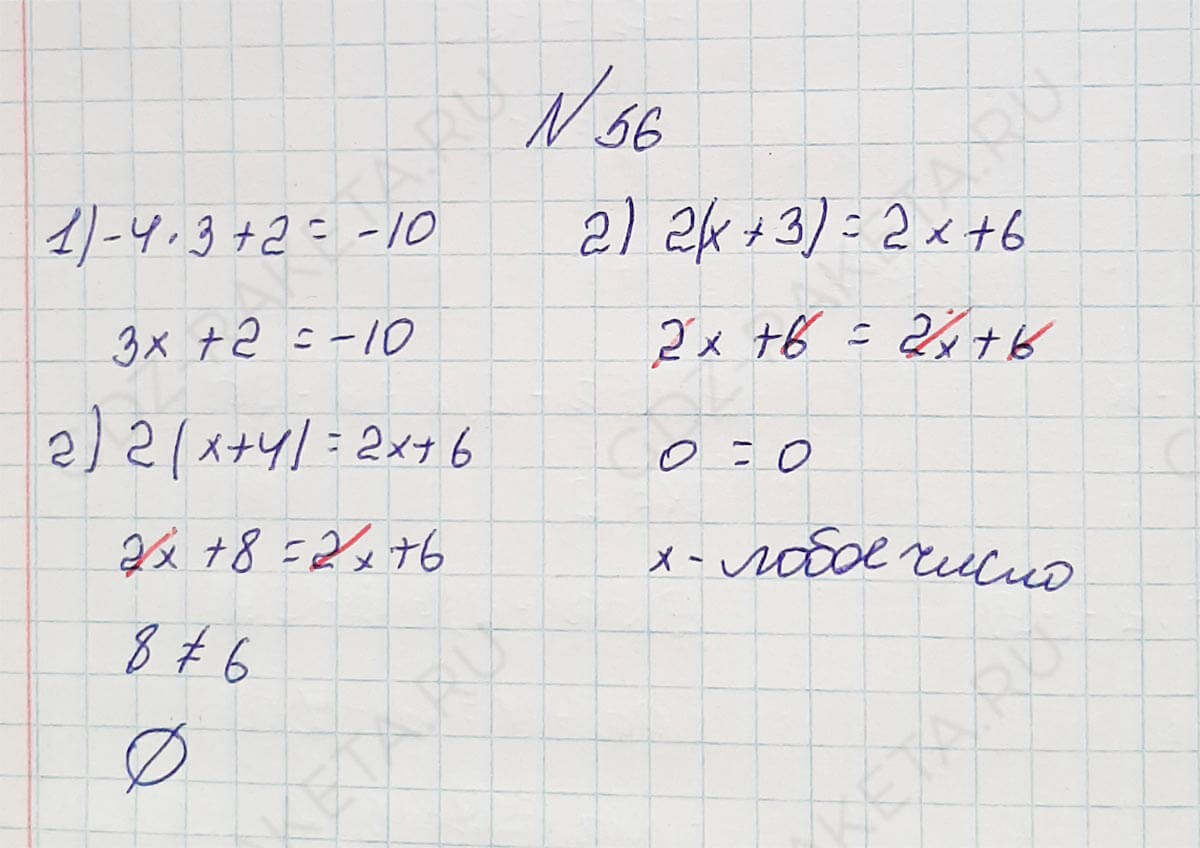 N 56
1) -4·3+2 = -10
3x +2 = -10
2) 2(x+4) = 2x+6
2x +8 = 2x +6
8 ≠ 6
∅
2) 2(x+3) = 2x+6
2x +6 = 2x+6
0 = 0
x - любое число
GDZ-RAKETA.RU